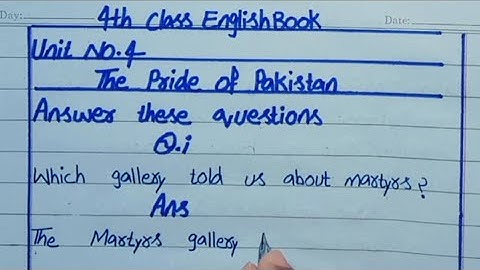 Day: Date:
4th Class English Book
Unit No.4
The Pride of Pakistan
Answer these questions
Q.i
Which gallery told us about martyrs?
Ans
The Martyrs gallery